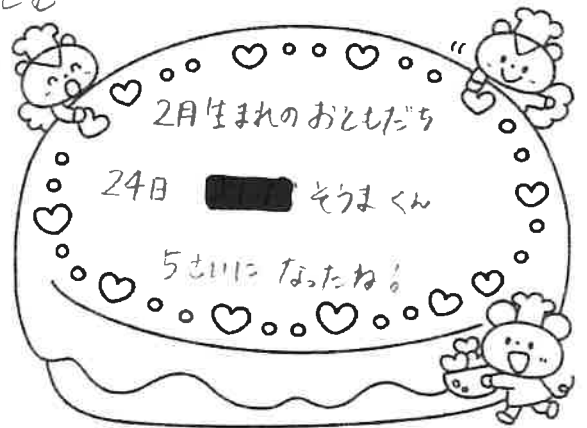 2月生まれのおともだち
24日 そうま くん
5さいに なったね!